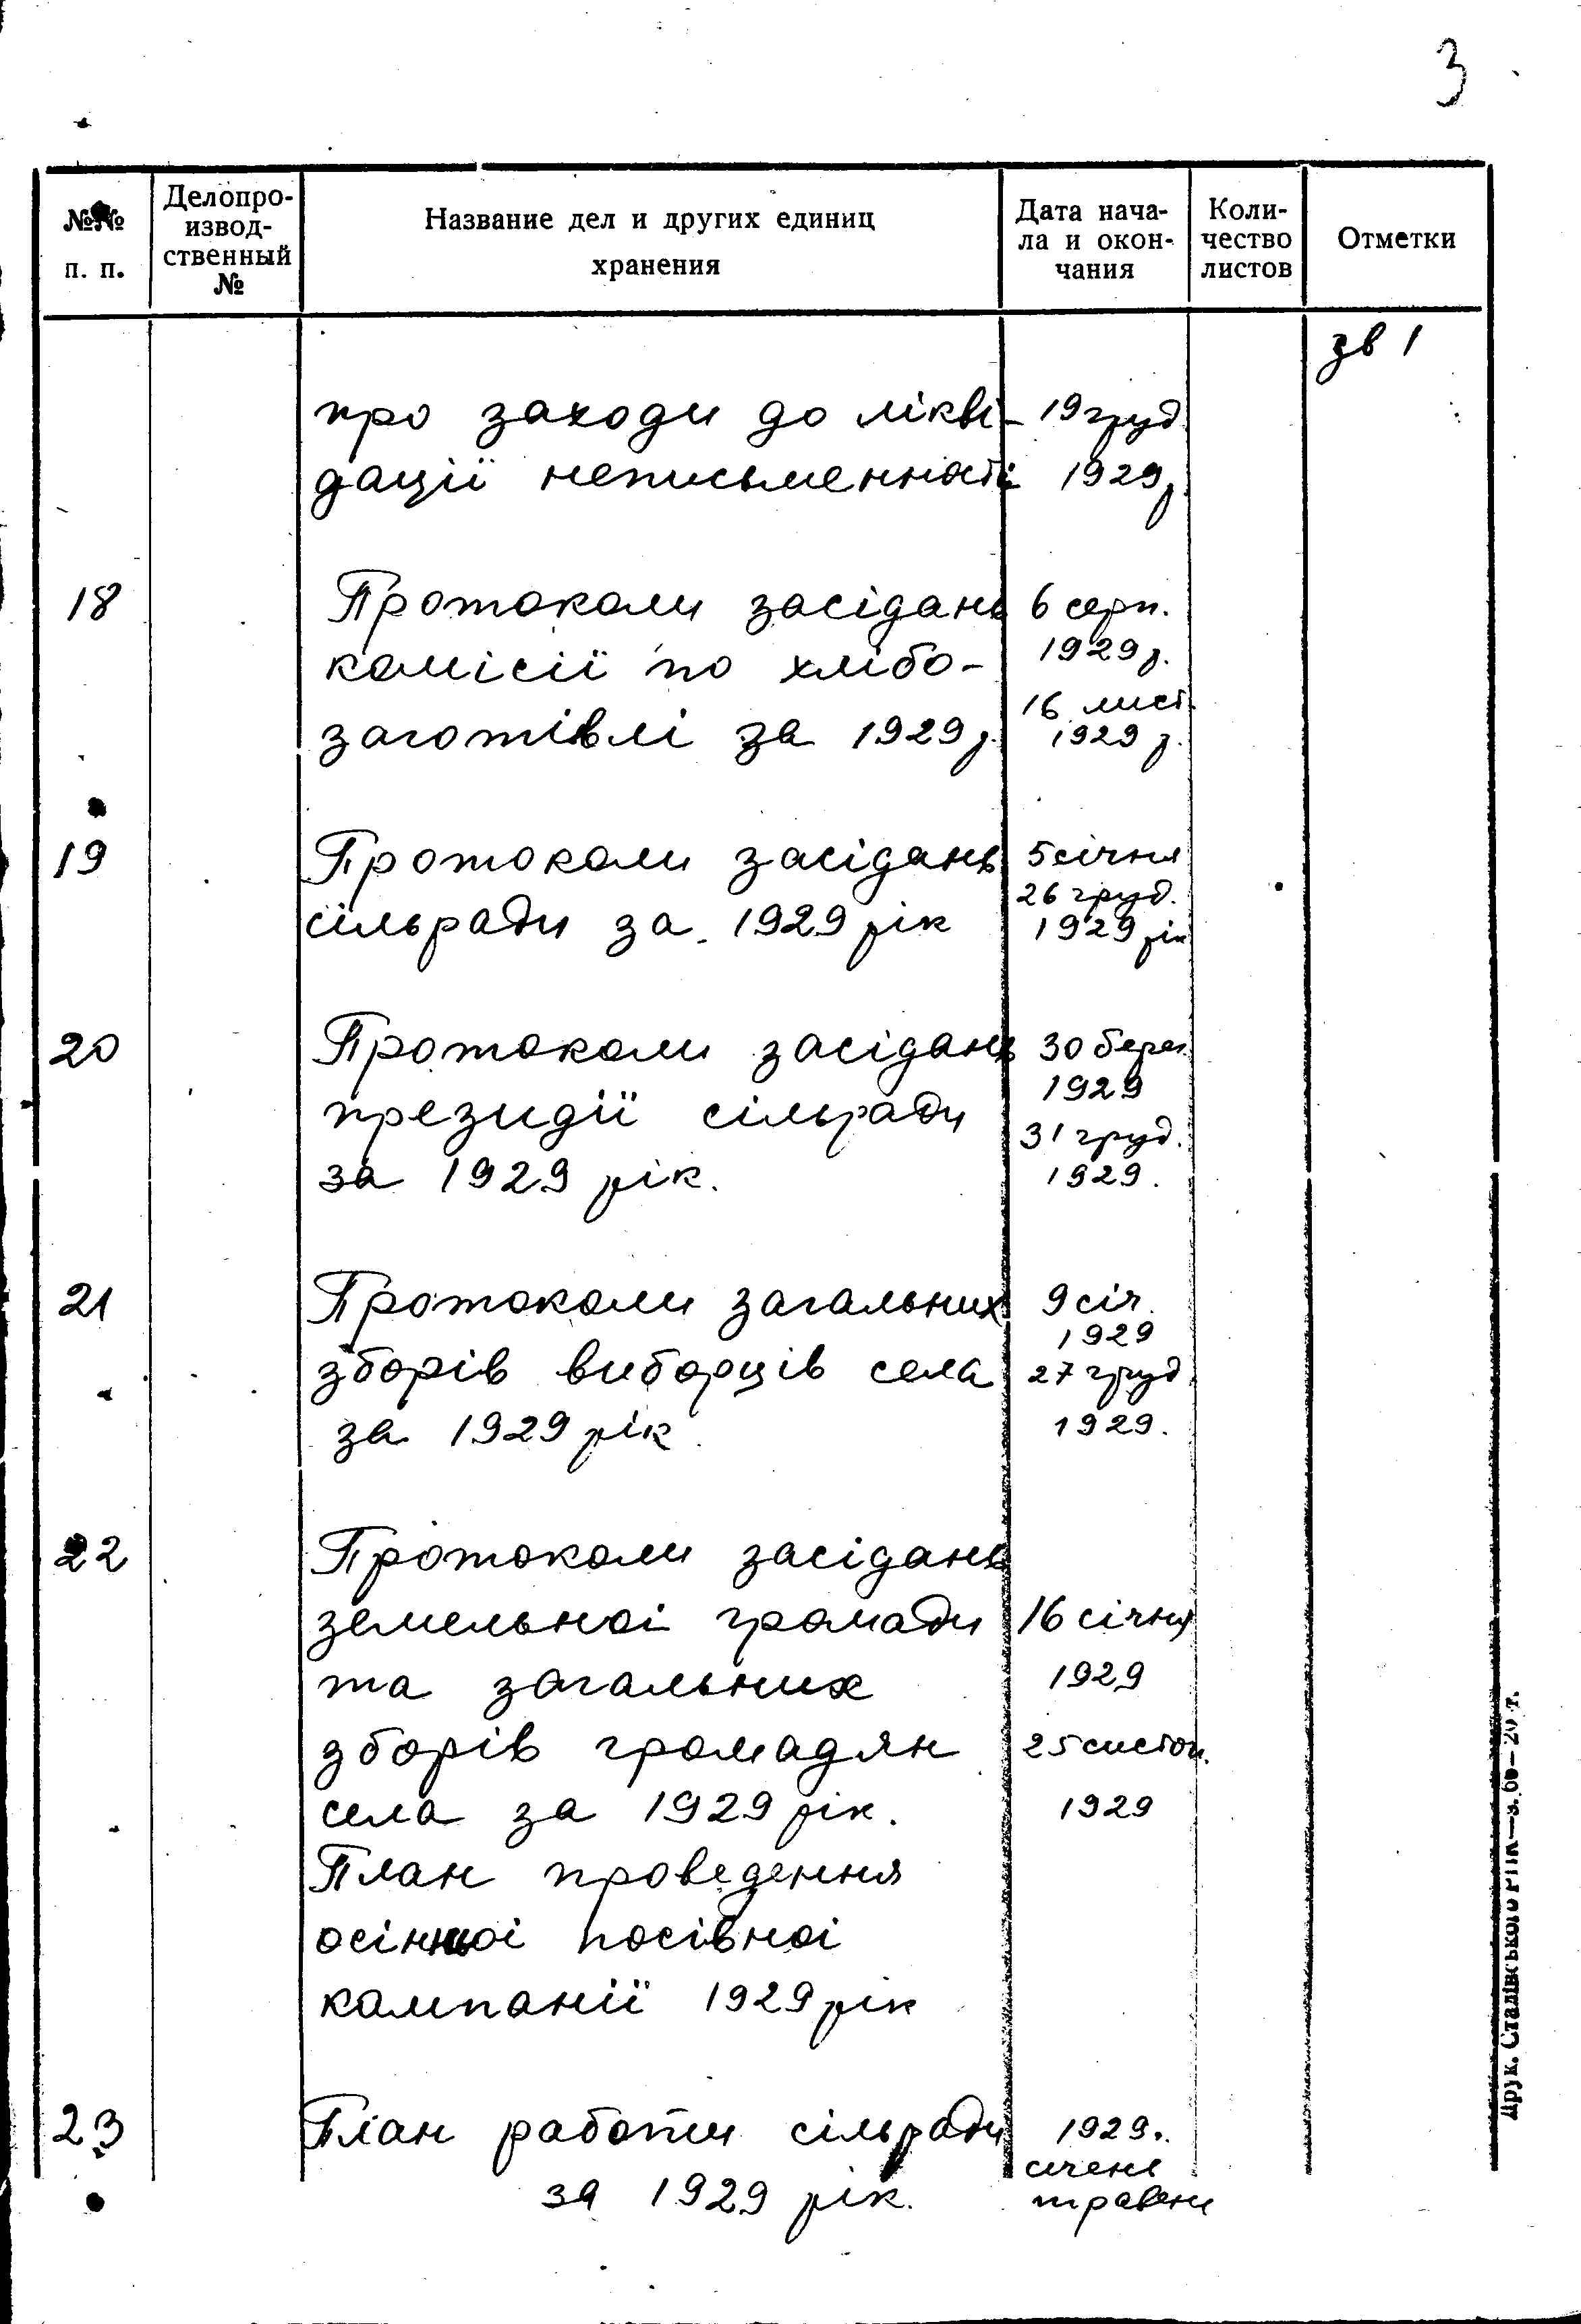 3
№№ п. п.
Делопро-
извод-
ственный
№
Название дел и других единиц
хранения
Дата нача-
ла и окон-
чания
Коли-
чество
листов
Отметки
зв 1
про заходи до лікві- 19 груд.
дації неписьменності 1929 р.
18 Протоколи засідань 6 серп.
комісії по хлібо- 1929 р.
16 лист.
заготівлі за 1929 р. 1929 р.
19 Протоколи засідань 5 січня
26 груд.
сільради за 1929 рік 1929 рік
20 Протоколи засідань 30 берез
1929
президії сільради 31 груд.
за 1929 рік. 1929.
21 Протоколи загальних 9 січ.
1929
зборів виборців села 27 груд.
за 1929 рік 1929.
22 Протоколи засідань
земельної громади 16 січня
та загальних 1929
зборів громадян 25
села за 1929 рік. 1929
План проведення
осінньої посівної
кампанії 1929 рік
23 План работи сільради 1929.
січень
за 1929 рік. травень
Друк. Сталівського